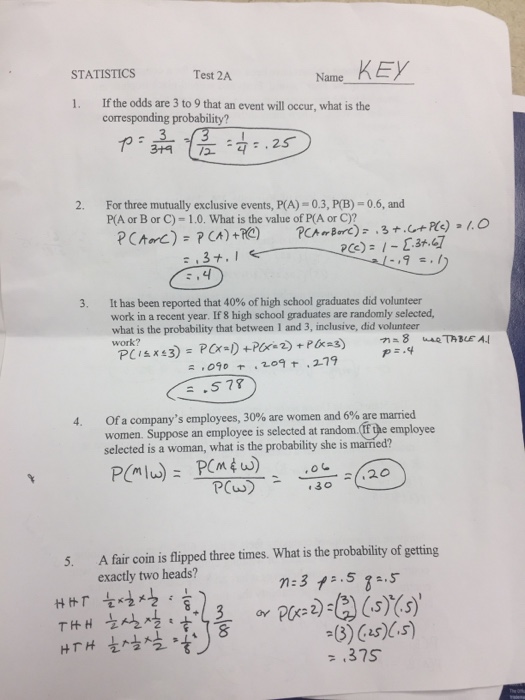 STATISTICS Test 2A Name KEY
1. If the odds are 3 to 9 that an event will occur, what is the
corresponding probability?
p = 3/(3+9) = 3/12 = 1/4 = .25
2. For three mutually exclusive events, P(A) = 0.3, P(B) = 0.6, and
P(A or B or C) = 1.0. What is the value of P(A or C)?
P(A or C) = P(A) + P(C) P(A or B or C) = .3 + .6 + P(C) = 1.0
P(C) = 1 - [.3+.6]
= .3 + .1 = 1 - .9 = .1
= .4
3. It has been reported that 40% of high school graduates did volunteer
work in a recent year. If 8 high school graduates are randomly selected,
what is the probability that between 1 and 3, inclusive, did volunteer
work? n = 8 use TABLE A.1
P(1≤x≤3) = P(x=1) + P(x=2) + P(x=3) p = .4
= .090 + .209 + .279
= .578
4. Of a company's employees, 30% are women and 6% are married
women. Suppose an employee is selected at random. If the employee
selected is a woman, what is the probability she is married?
P(M|W) = P(M & W)/P(W) = .06/.30 = .20
5. A fair coin is flipped three times. What is the probability of getting
exactly two heads?
n=3 p=.5 q=.5
HHT 1/2 x 1/2 x 1/2 = 1/8
THH 1/2 x 1/2 x 1/2 = 1/8 + 3/8 or P(x=2) = (3 2) (.5)²(.5)¹
HTH 1/2 x 1/2 x 1/2 = 1/8 = (3) (.25)(.5)
= .375